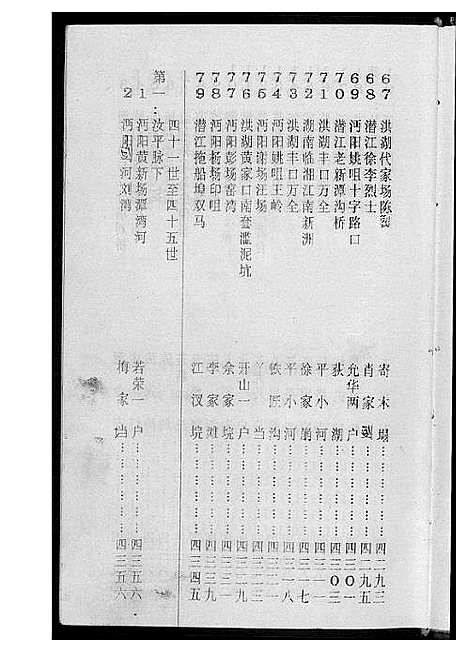 67 洪湖代家场陈 寄木塌……四二九三
68 潜江徐李烈士 肖家……四二九五
69 沔阳姚咀十字路口 允华两户……四三〇一
70 潜江老新潭沟桥 荻湖……四三〇三
71 洪湖丰口万全 平小河……四三一一
72 湖南临湘江南新洲 徐家崩……四三一七
73 洪湖丰口万全 平小河……四三一八
74 沔阳姚咀王岭 铁匠沟……四三二二
75 沔阳谢场汪场 丫当……四三二三
76 洪湖黄家口南套滥泥坑 开山一户……四三二九
77 沔阳彭场窑湾 余家垸……四三三一
78 沔阳杨场印咀 李家滩……四三三九
79 潜江拖船埠双马 江汉垸……四三四五
四十一世至四十五世
第一：汝平脉下
1 沔阳黄新场潭湾河 若荣一户……四三五六
2 沔阳河刘湾 梅家垱……四三五六